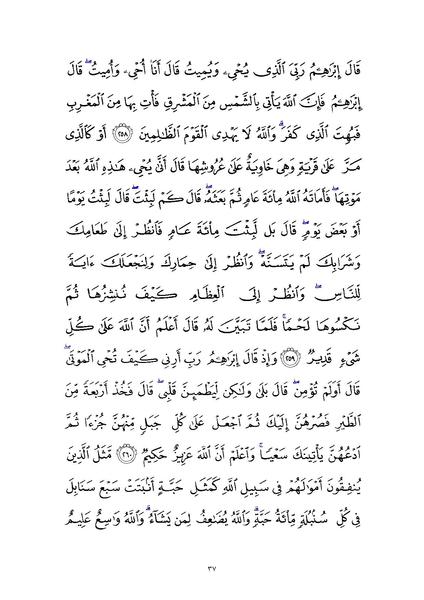 قَالَ إِبْرَٰهِـۧمُ رَبِّىَ ٱلَّذِى يُحْىِۦ وَيُمِيتُ قَالَ أَنَا۠ أُحْىِۦ وَأُمِيتُ ۖ قَالَ
إِبْرَٰهِـۧمُ فَإِنَّ ٱللَّهَ يَأْتِى بِٱلشَّمْسِ مِنَ ٱلْمَشْرِقِ فَأْتِ بِهَا مِنَ ٱلْمَغْرِبِ
فَبُهِتَ ٱلَّذِى كَفَرَ ۗ وَٱللَّهُ لَا يَهْدِى ٱلْقَوْمَ ٱلظَّـٰلِمِينَ ۝٢٥٨ أَوْ كَٱلَّذِى
مَرَّ عَلَىٰ قَرْيَةٍ وَهِىَ خَاوِيَةٌ عَلَىٰ عُرُوشِهَا قَالَ أَنَّىٰ يُحْىِۦ هَـٰذِهِ ٱللَّهُ بَعْدَ
مَوْتِهَا ۖ فَأَمَاتَهُ ٱللَّهُ مِا۟ئَةَ عَامٍ ثُمَّ بَعَثَهُۥ ۖ قَالَ كَمْ لَبِثْتَ ۖ قَالَ لَبِثْتُ يَوْمًا
أَوْ بَعْضَ يَوْمٍ ۖ قَالَ بَل لَّبِثْتَ مِا۟ئَةَ عَامٍ فَٱنظُرْ إِلَىٰ طَعَامِكَ
وَشَرَابِكَ لَمْ يَتَسَنَّهْ ۖ وَٱنظُرْ إِلَىٰ حِمَارِكَ وَلِنَجْعَلَكَ ءَايَةً
لِّلنَّاسِ ۖ وَٱنظُرْ إِلَى ٱلْعِظَامِ كَيْفَ نُنشِزُهَا ثُمَّ
نَكْسُوهَا لَحْمًا ۚ فَلَمَّا تَبَيَّنَ لَهُۥ قَالَ أَعْلَمُ أَنَّ ٱللَّهَ عَلَىٰ كُلِّ
شَىْءٍ قَدِيرٌ ۝٢٥٩ وَإِذْ قَالَ إِبْرَٰهِـۧمُ رَبِّ أَرِنِى كَيْفَ تُحْىِ ٱلْمَوْتَىٰ ۖ
قَالَ أَوَلَمْ تُؤْمِن ۖ قَالَ بَلَىٰ وَلَـٰكِن لِّيَطْمَئِنَّ قَلْبِى ۖ قَالَ فَخُذْ أَرْبَعَةً مِّنَ
ٱلطَّيْرِ فَصُرْهُنَّ إِلَيْكَ ثُمَّ ٱجْعَلْ عَلَىٰ كُلِّ جَبَلٍ مِّنْهُنَّ جُزْءًا ثُمَّ
ٱدْعُهُنَّ يَأْتِينَكَ سَعْيًا ۚ وَٱعْلَمْ أَنَّ ٱللَّهَ عَزِيزٌ حَكِيمٌ ۝٢٦٠ مَّثَلُ ٱلَّذِينَ
يُنفِقُونَ أَمْوَٰلَهُمْ فِى سَبِيلِ ٱللَّهِ كَمَثَلِ حَبَّةٍ أَنۢبَتَتْ سَبْعَ سَنَابِلَ
فِى كُلِّ سُنۢبُلَةٍ مِّا۟ئَةُ حَبَّةٍ ۗ وَٱللَّهُ يُضَـٰعِفُ لِمَن يَشَآءُ ۗ وَٱللَّهُ وَٰسِعٌ عَلِيمٌ
٣٧